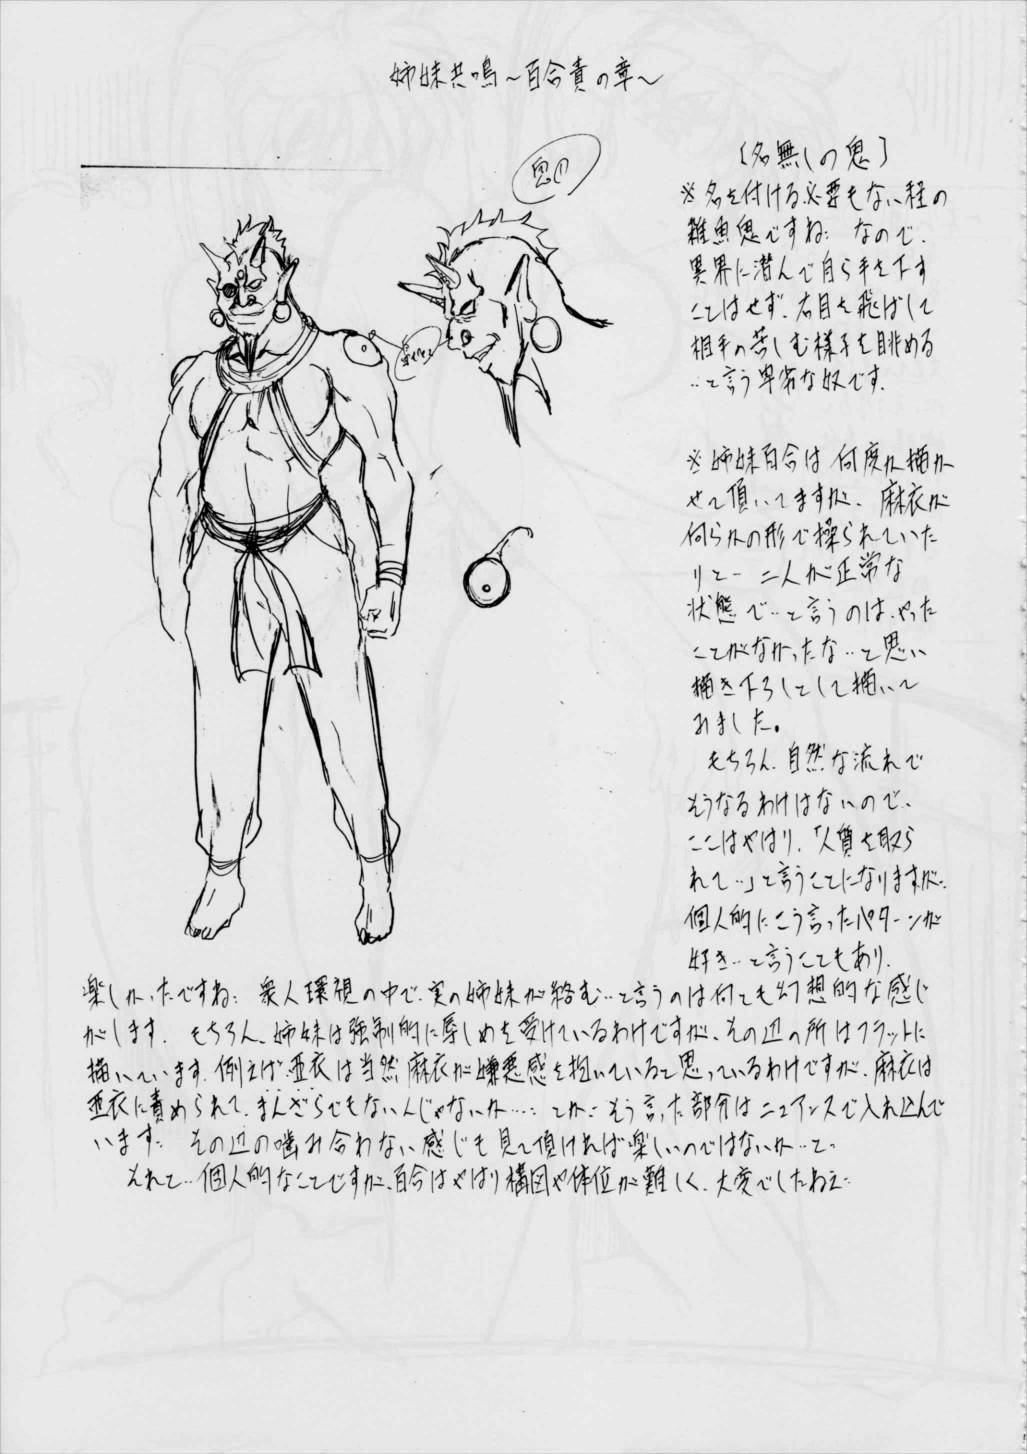 姉妹共鳴～百合責の章～
鬼の
〔名無しの鬼〕
※名を付ける必要もない程の
雑魚鬼ですね… なので、
異界に潜んで自ら手を下す
ことはせず、右目を飛ばして
相手の苦しむ様子を眺める
…と言う卑劣な奴です。
※姉妹百合は何度か描か
せて頂いてますが、麻衣が
何らかの形で操られていた
りと… 二人が正常な
状態で…と言うのは、やった
ことがなかったな…と思い
描き下ろしとして描いて
みました。
もちろん、自然な流れで
そうなるわけはないので、
ここはやはり、「人質を取ら
れて…」と言うことになりますが…
個人的にこう言ったパターンが
好き…と言うこともあり、
楽しかったですね… 衆人環視の中で、実の姉妹が絡む…と言うのは何とも幻想的な感じ
がします。 もちろん、姉妹は強制的に辱しめを受けているわけですが、その辺の所はフラットに
描いています。例えば、亜衣は当然麻衣が嫌悪感を抱いていると思っているわけですが、麻衣は
亜衣に責められて、まんざらでもないんじゃないか…… とか… そう言った部分はニュアンスで入れ込んで
います… その辺の噛み合わない感じも見て頂ければ楽しいのではないか…と。
それと… 個人的なことですが、百合はやはり構図や体位が難しく、大変でしたねえ…